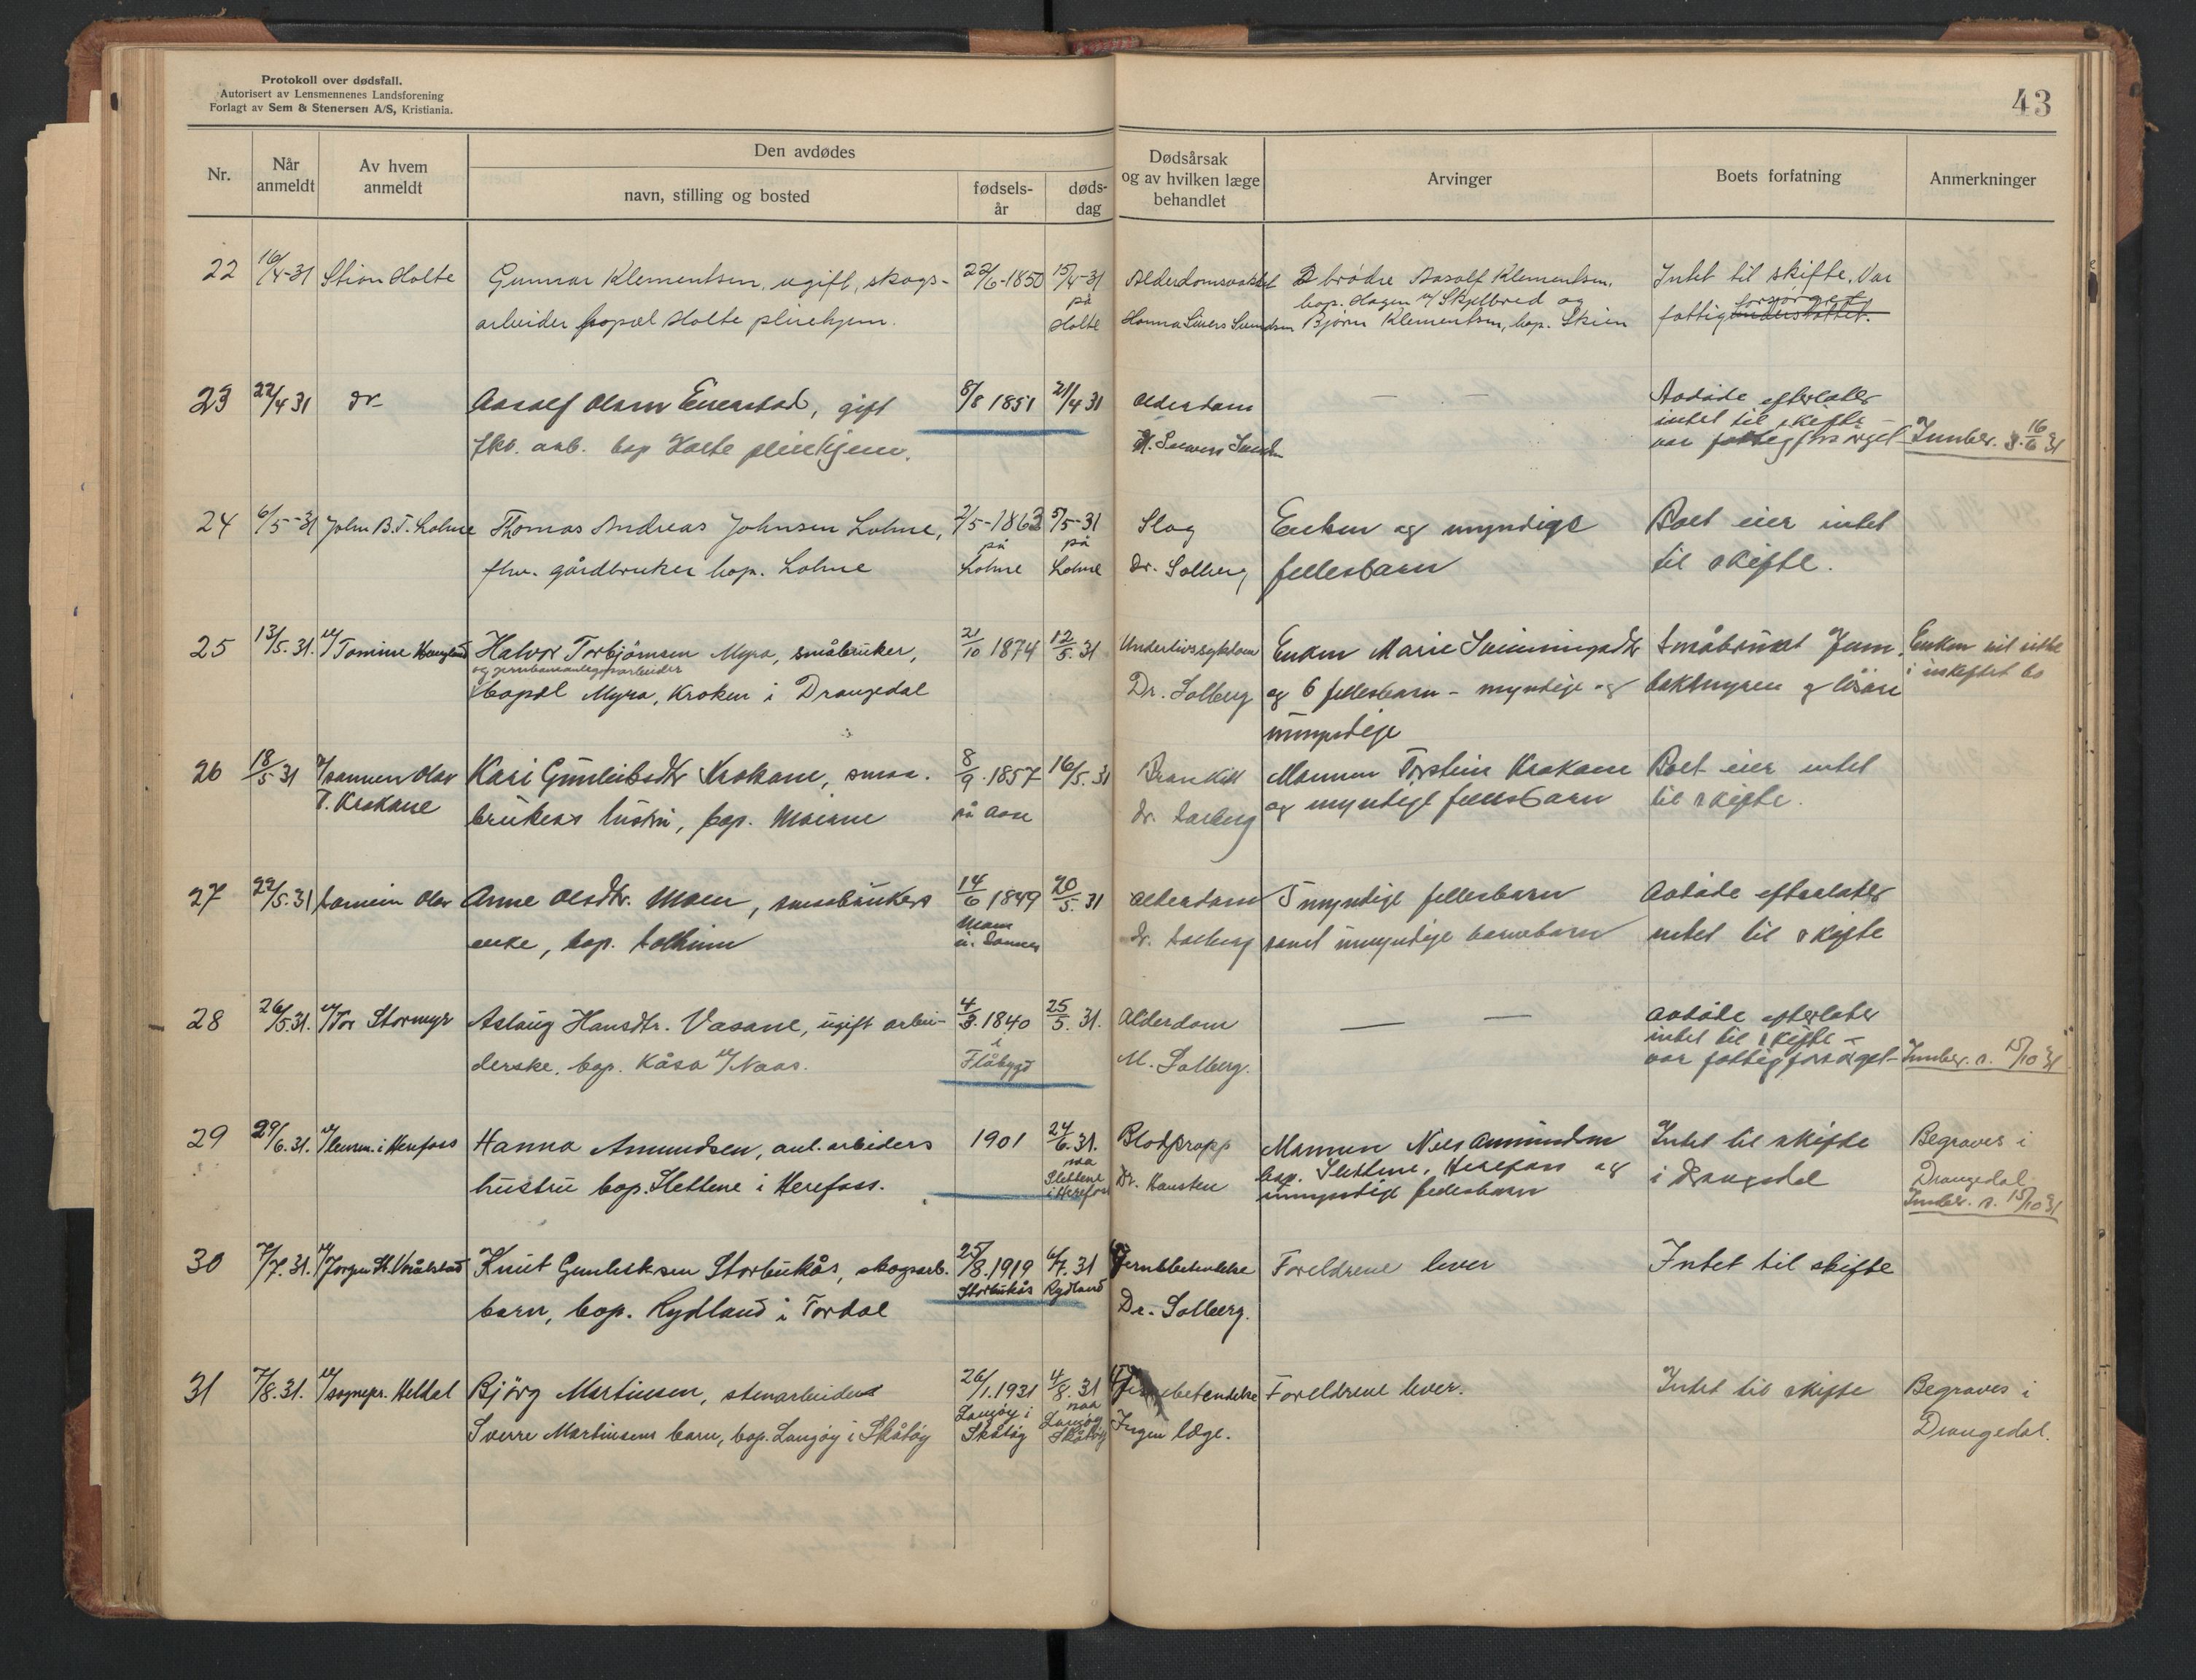 Protokoll over dødsfall.
Autorisert av Lensmennenes Landsforening
Forlagt av Sem & Stenersen A/S, Kristiania.
43
Nr.
Når anmeldt
Av hvem anmeldt
Den avdødes
navn, stilling og bosted
fødsels-år
døds-dag
Dødsårsak og av hvilken læge behandlet
Arvinger
Boets forfatning
Anmerkninger
22 16/4-31 Stian Holte Gunnar Klementsen, ugift, skogs- 22/6-1850 15/4-31 2 brødre Aasolf Klementsen, Intet til skifte. Var
på bop. Hagen u/ Skjelbred og forsørget
arbeider bopæl Holte pleiehjem. Holte Hanna Sivers Bjørn Klementsen, bop. Skien fattigunderstøttet.
23 22/4 31 Dr. Aasolf Olsen, gift 8/8 1851 21/4 31 Alderdom — — Avdøde efterlater
intet til skifte –
arb. bop Holte pleiehjem. var fattigforsørget Innber. s. 16/6 31
24 6/5-31 John B.T. Lohne Thomas Andreas Johnsen Lohne, 2/5-1863 5/5-31 Slag Enken og myndige Boet eier intet
på på
fhv. gårdbruker bop. Lohne Lohne Lohne Dr. Solberg fellesbarn til skifte.
25 13/5.31. v/ Tomine Haugland Halvor Torbjørnsen Myra, småbruker, 21/10 1874 12/5.31 Underlivssykdom Enken Marie Småbruket Enken vil sitte
og jernbaneanlegsarbeider
bopæl Myra, Kroken i Drangedal Dr. Solberg og 6 fellesbarn – myndige og og løsøre i uskiftet bo
umyndige
26 18/5 31 v/ sønnen Olav Kari Gunleiksdtr Krokane, smaa- 8/9.1857 16/5.31 Mannen Torstein Krokane Boet eier intet
T. Krokane brukers hustru, bop. på Aase Dr. Solberg og myndige fellesbarn til skifte.
27 22/5.31 Olav Anne Olsdtr. Moen, smaabrukers 14/6 1849 20/5.31 Alderdom 5 myndige fellesbarn Avdøde efterlater
enke, bop. Dr. Solberg samt umyndige barnebarn intet til skifte
28 26/5.31. v/ Tor Stormyr Aslaug Hansdtr. Vasane, ugift arbei- 4/3.1840 25/5.31. Alderdom — — Avdøde efterlater
i intet til skifte –
derske, bop. Kåsa u/ Naas. Flåbygd Solberg. var fattigforsørget – Innber. s. 15/10 31
29 29/6.31. v/ lensm. i Herefoss Hanna Amundsen, anl. arbeiders 1901 24/6.31. Blodpropp Mannen Nils Amundsen Intet til skifte Begraves i
paa bop. Slettene, Herefoss og
hustru bop. Slettene i Herefoss. Slettene i Herefoss Dr. Hansten umyndige fellesbarn i Drangedal Drangedal
Innber. s. 15/10 31
30 7/7.31. v/ Jørgen St. Vrålstad Knut Gunleiksen Storbukås, skogsarb. 25/8.1919 6/7.31 Foreldrene lever Intet til skifte
Storbukås Rydland
barn, bop. Rydland i Tørdal Dr. Solberg.
31 7/8.31. v/ sognepr. Heldal Bjørg Martinsen, stenarbeider 26/1.1931 4/8.31 Foreldrene lever. Intet til skifte Begraves i
Langøy i paa Langøy
Sverre Martinsens barn, bop. Langøy i Skåtøy Skåtøy Skåtøy Ingen læge. Drangedal.